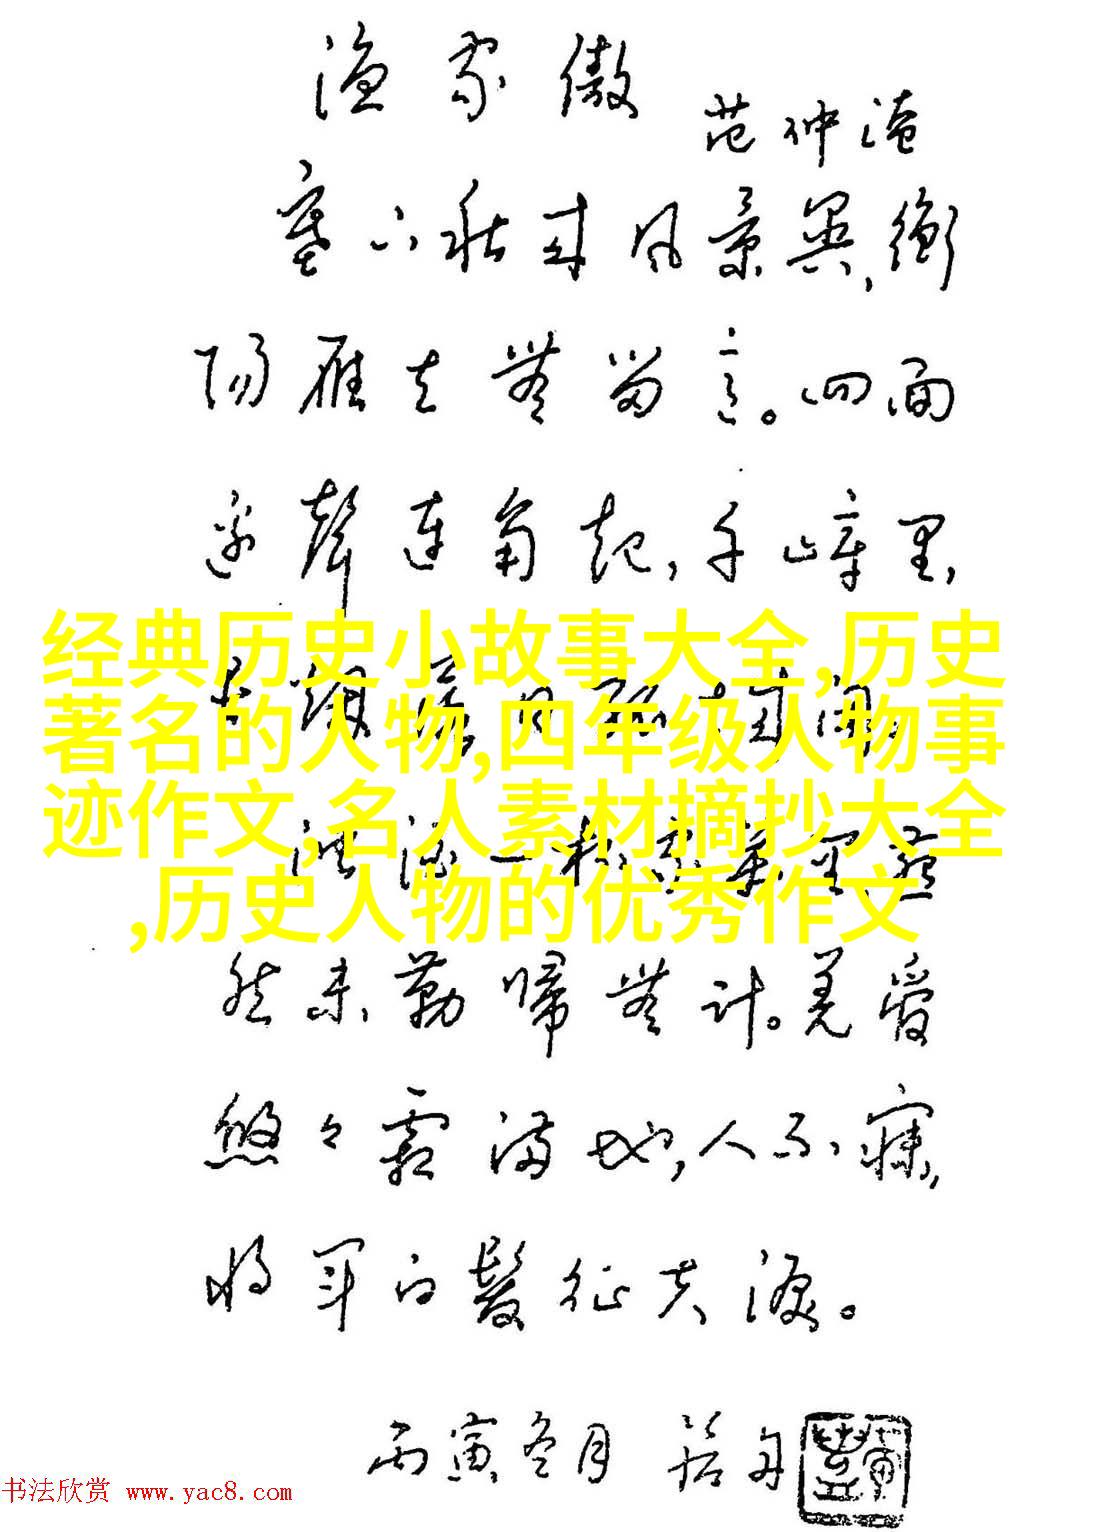 渔家傲
范仲淹
塞下秋来风景异,衡
阳雁去无留意。四面
边聲连角起,千嶂里,
经典历史小故事大全,历史
著名的人物,四年级人物事
迹作文,名人素材摘抄大全
,历史人物的优秀作文
长烟落日孤城闭。
浊酒一杯家萬里,燕
然未勒歸無计。羌管
悠々霜满地,人不寐,
将军白髮征夫淚。
丙寅冬月
书法欣赏 www.yac8.com